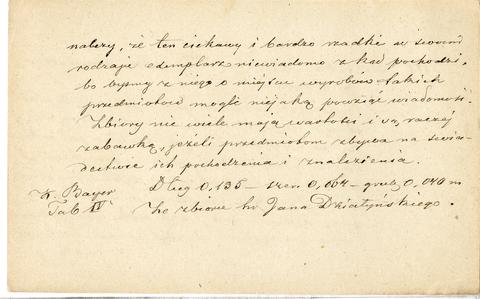 należy, że ten ciekawy i bardzo rzadki w swoim
rodzaju exemplarz niewiadomo z kąd pochodzi,
bo byśmy z niego o miejscu wyrobów takich
przedmiotów mogli niejaką powziąć wiadomość.
Zbiory nie wiele mają wartości i są raczej
zabawką, jeżeli przedmiotom zbywa na świa-
dectwie ich pochodzenia i znalezienia.
Dług 0,135 – szer 0,064 – grub 0,040 m
K. Bayer
Tab IV
Ze zbioru hr Jana Działyńskiego.